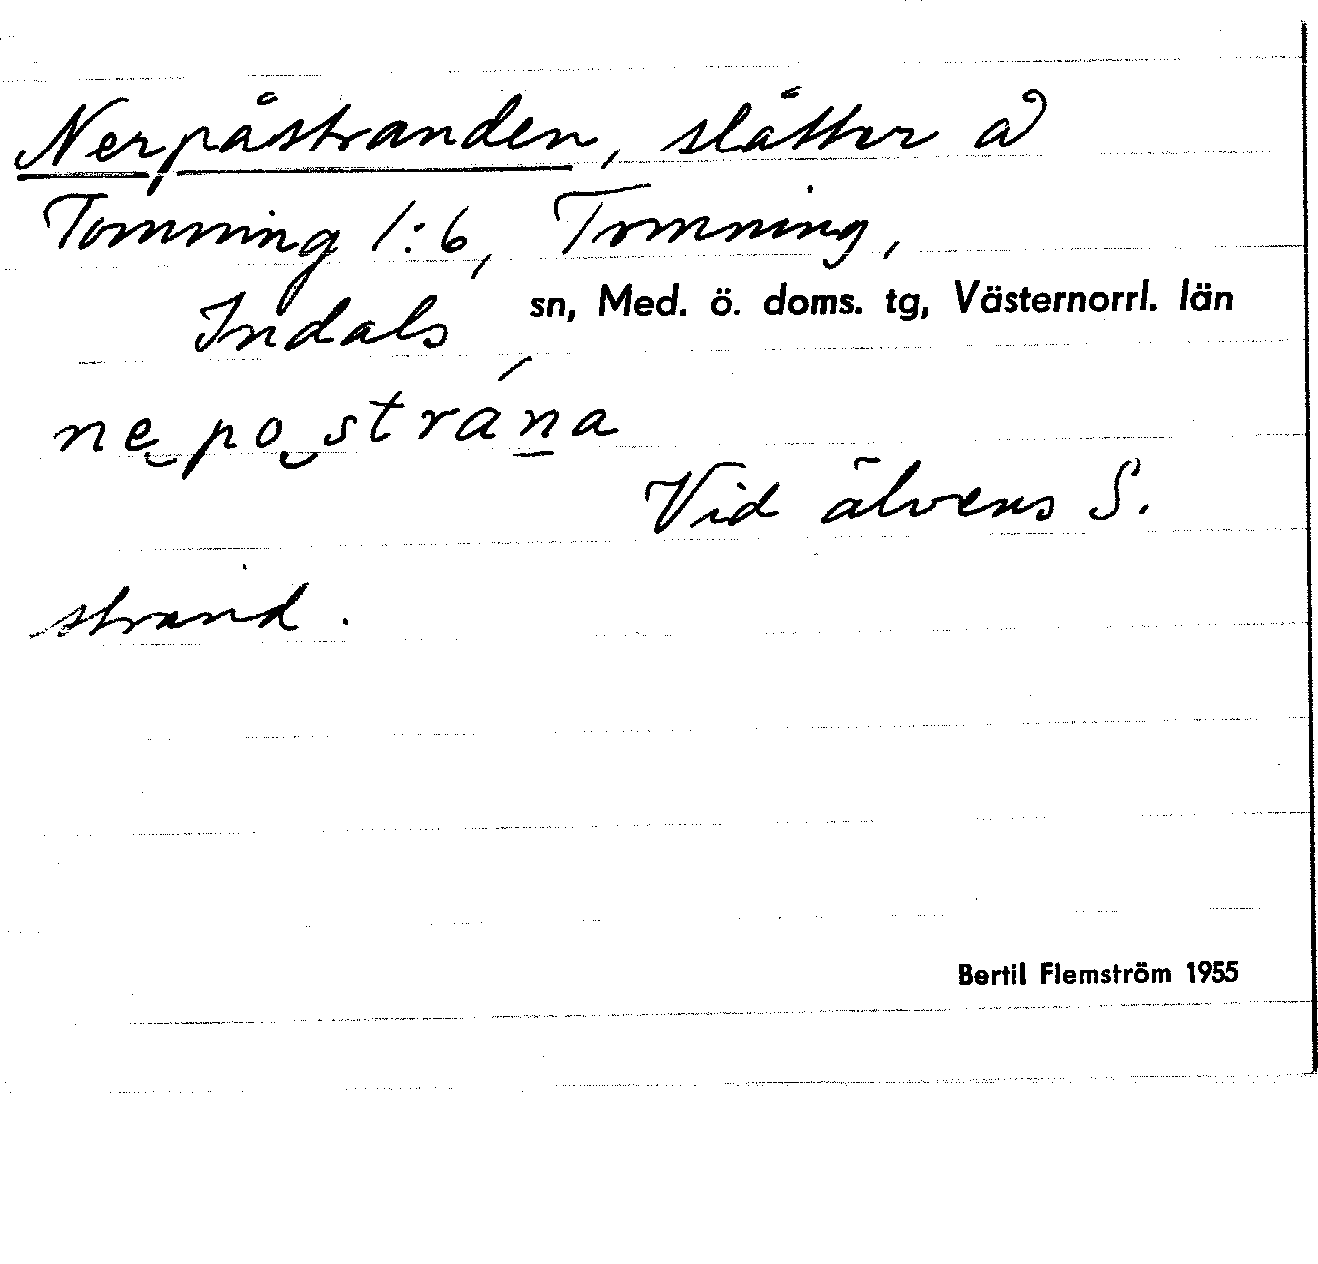 Nerpåstranden, slåtter å
Tomming 1:6, Tomming,
Indals sn, Med. ö. doms. tg, Västernorrl. län
ne̮ po̮ strána̱
Vid älvens S.
strand.
Bertil Flemström 1955